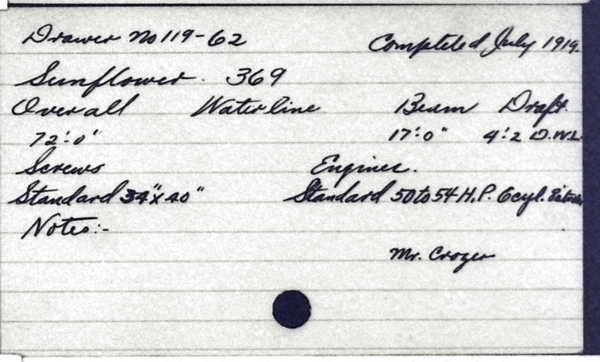 Drawer No 119-62 Completed July 1919.
Sunflower. 369
Over all Waterline Beam Draft
72'.0" 17'.0" 4'.2 D.W.L.
Screws Engines.
Standard 34"x40" Standard 50 to 54 H.P. 6 cyl.
Notes:-
Mr. Crozer